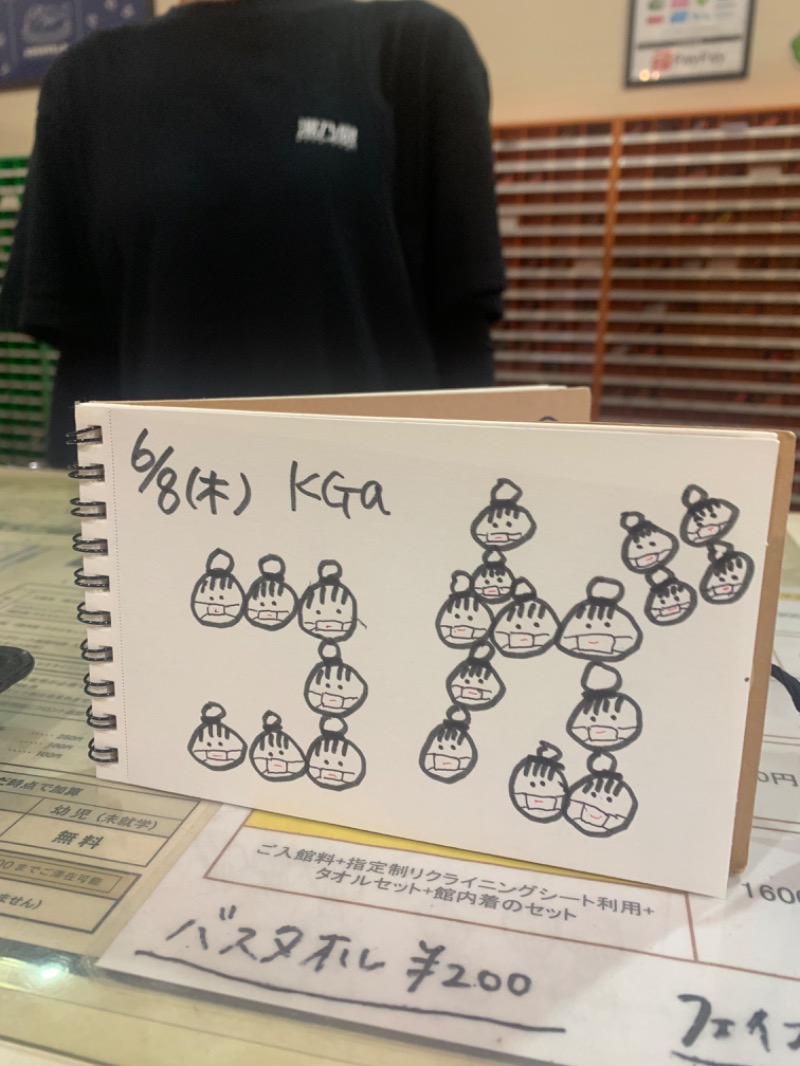 PayPay
6/8(木) KGa
コガ
時点で加算
幼児(未就学)
無料
00までご滞在可能
ません)
ご入館料+指定制リクライニングシート利用+
タオルセット+館内着のセット
0円
1600
バスタオル ¥200
フェイ